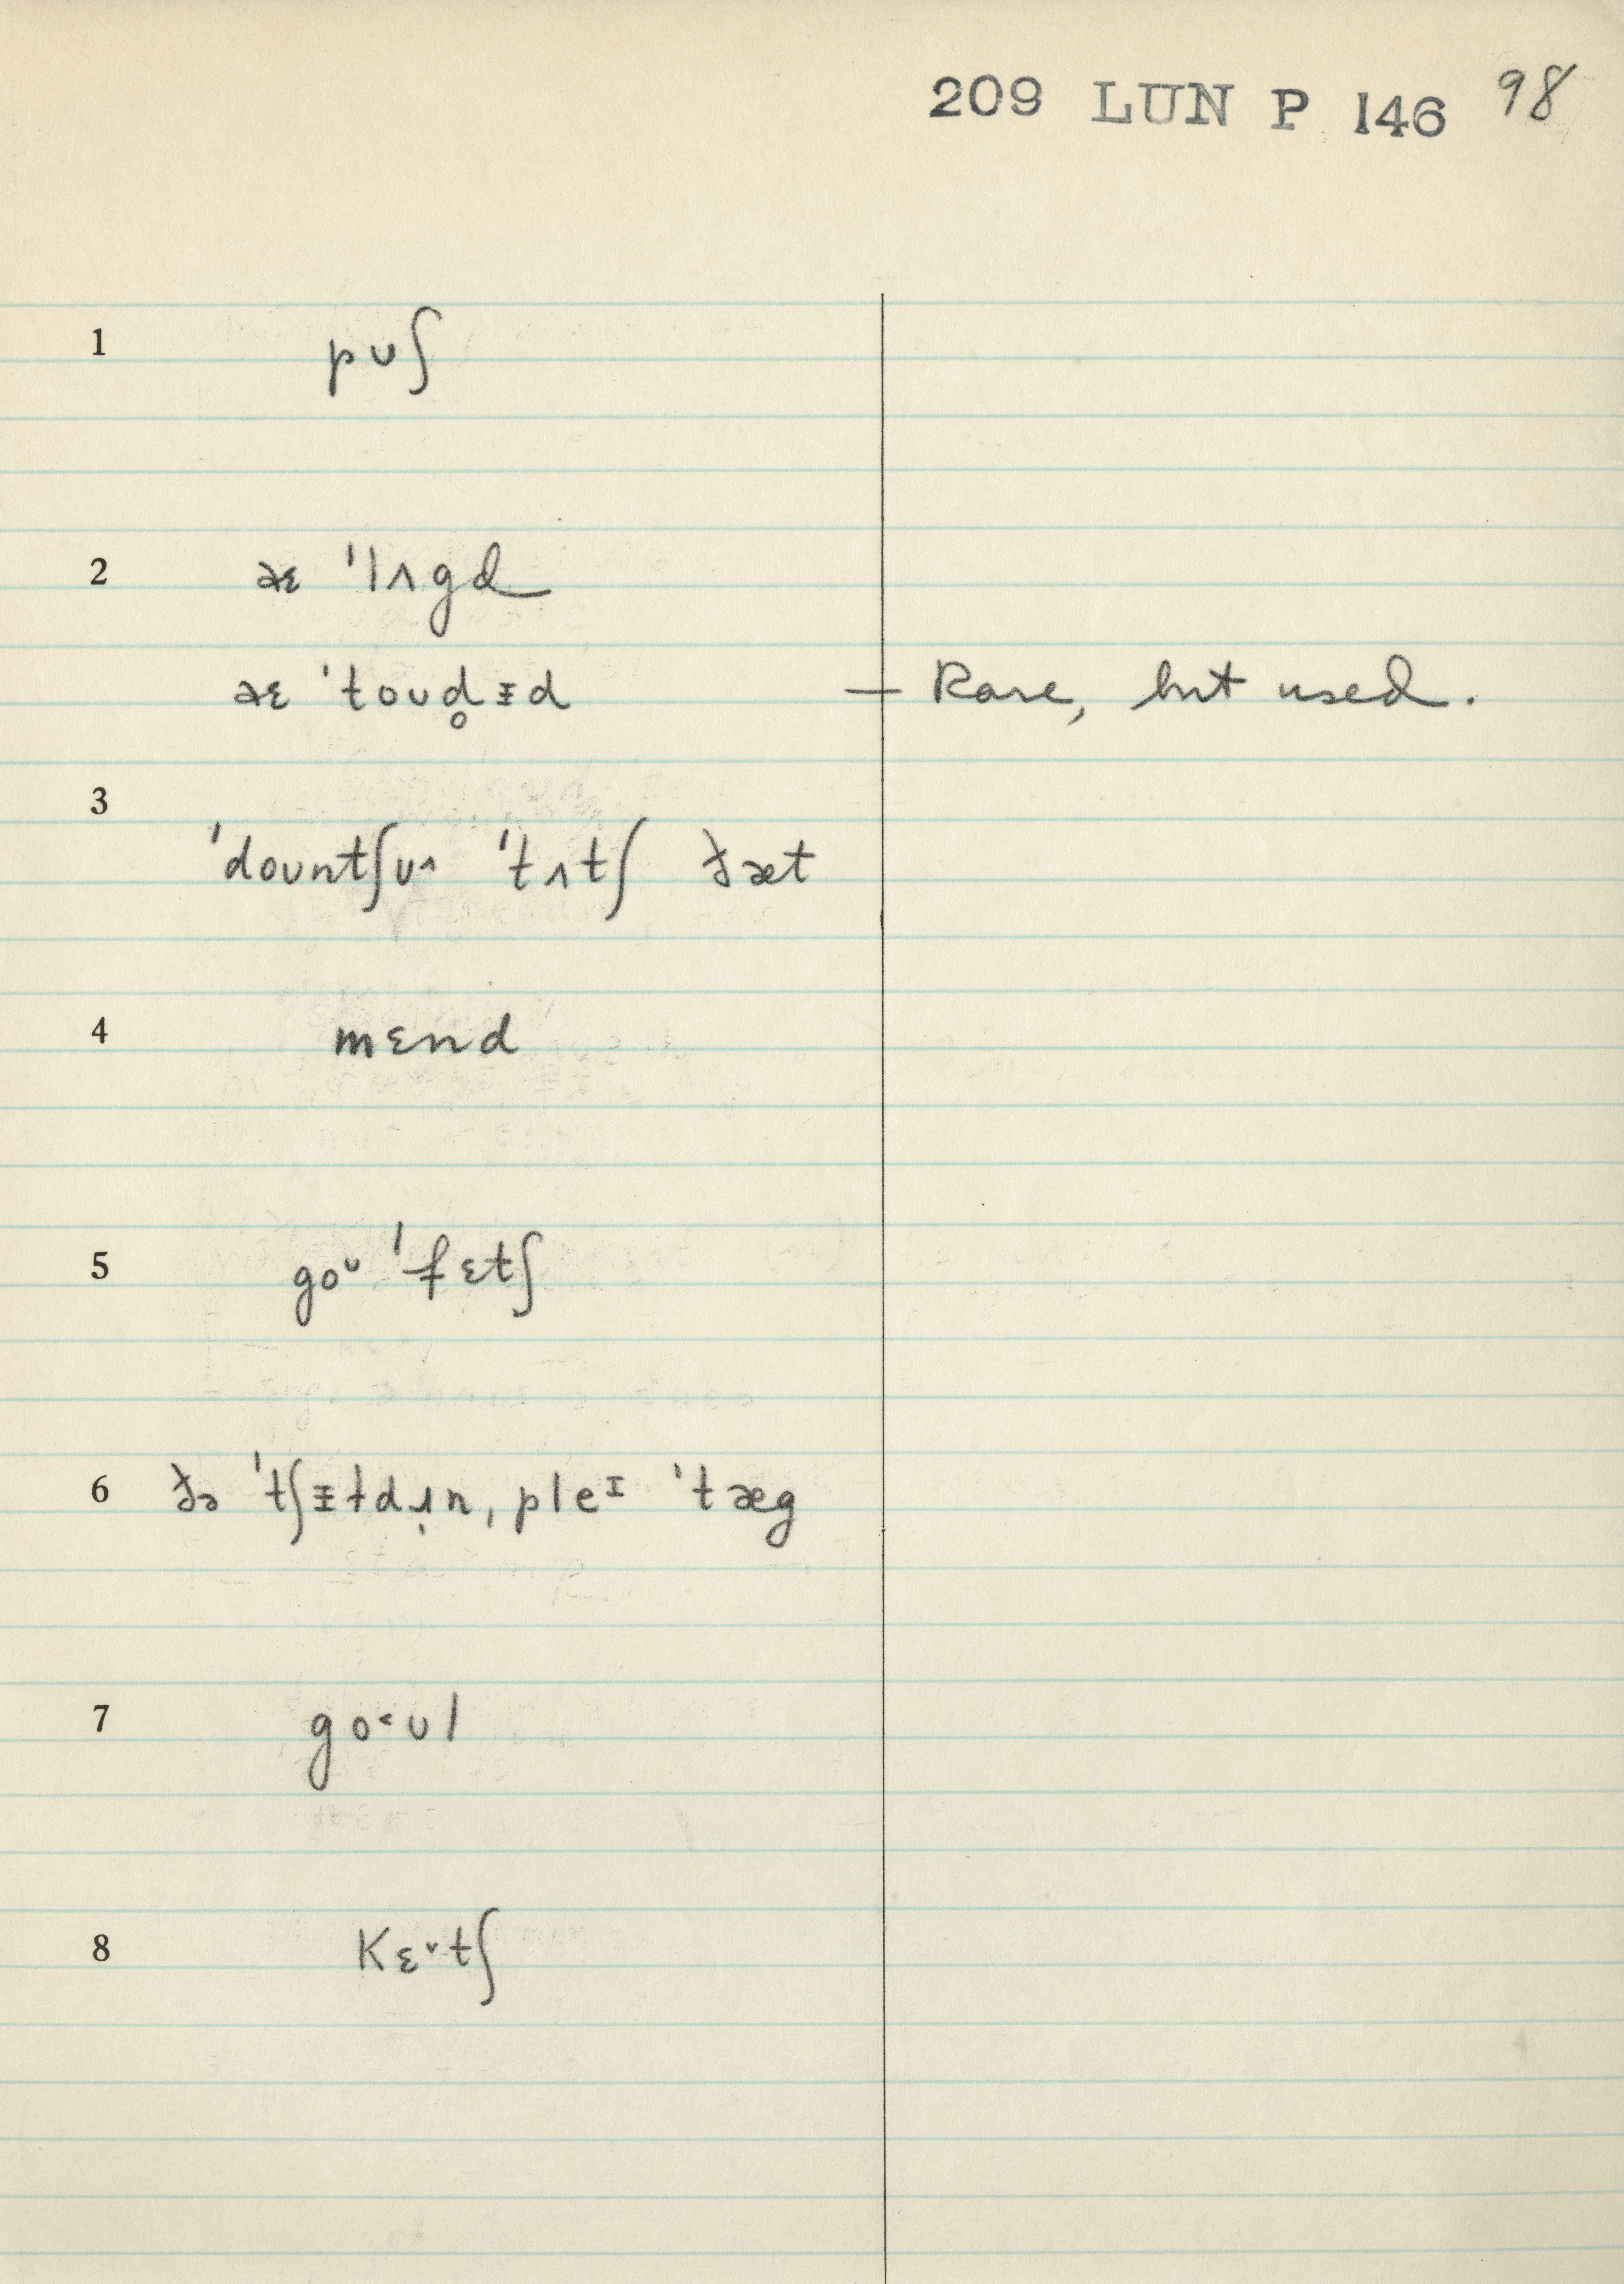 209 LUN P 146 98
1 pʊʃ
2 aɛ 'lʌgd
aɛ 'toʊd̥ɪ̵d — Rare, but used.
3
'doʊntʃʊ^ 'tʌtʃ ðæt
4 mɛnd
5 goᶷ 'fɛtʃ
6 ðə 'tʃɪ̵ɫdɹ̣n, pleᴵ 'tæg
7 go˂ʊl
8 kɛ˅tʃ